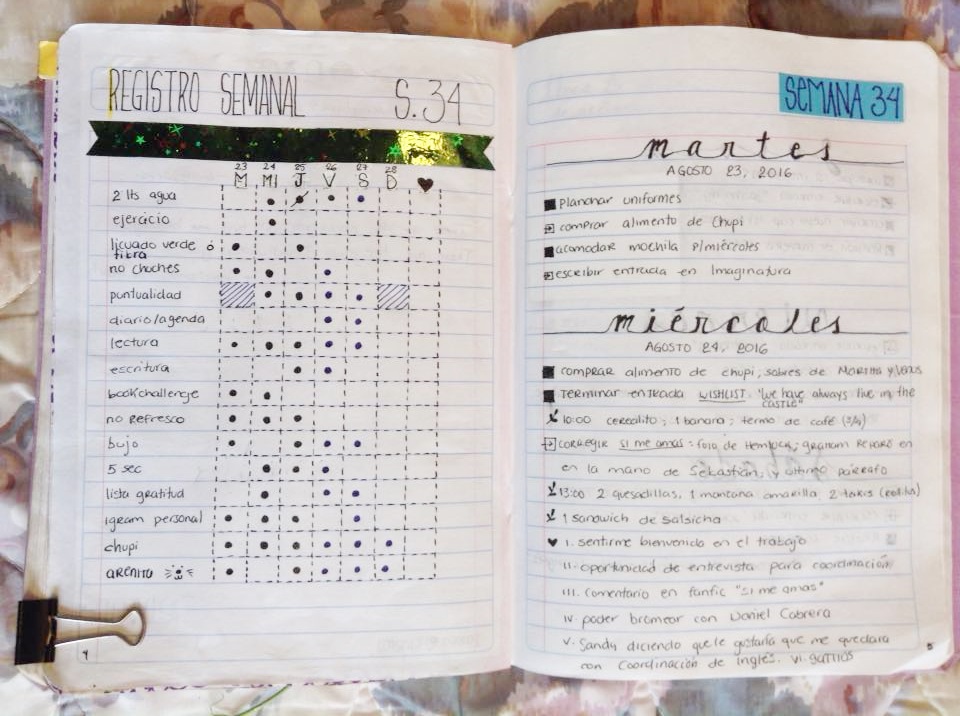 REGISTRO SEMANAL S.34
23 24 25 26 27 28
M MI J V S D ♥
2 lts agua
ejercicio
licuado verde ó
fibra
no choches
puntualidad
diario/agenda
lectura
escritura
book challenge
no refresco
bujo
5 sec
lista gratitud
igram personal
chupi
arenito
4
SEMANA 34
martes
AGOSTO 23, 2016
planchar uniformes
comprar alimento de Chupi
acomodar mochila p/miércoles
escribir entrada en Imaginatura
miércoles
AGOSTO 24, 2016
comprar alimento de chupi, sobres de Martha y
terminar entrada WISHLIST "we have always live in the
CASTLE"
10:00 cerealito; 1 banana; termo de café (3/4)
corregir si me amas: foro de Hemlock; graham en
en la mano de Sebastián, y último párrafo
13:00 2 quesadillas, 1 manzana amarilla, 2 takis (rollito)
1 sandwich de salsicha
♥ I. sentirme bienvenido en el trabajo
II. oportunidad de entrevista para coordinación
III. comentario en fanfic "si me amas"
IV poder bromear con Daniel Cabrera
V. Sandy diciendo que le gustaría que me quedara
con Coordinación de Inglés. VI. gatitos
5